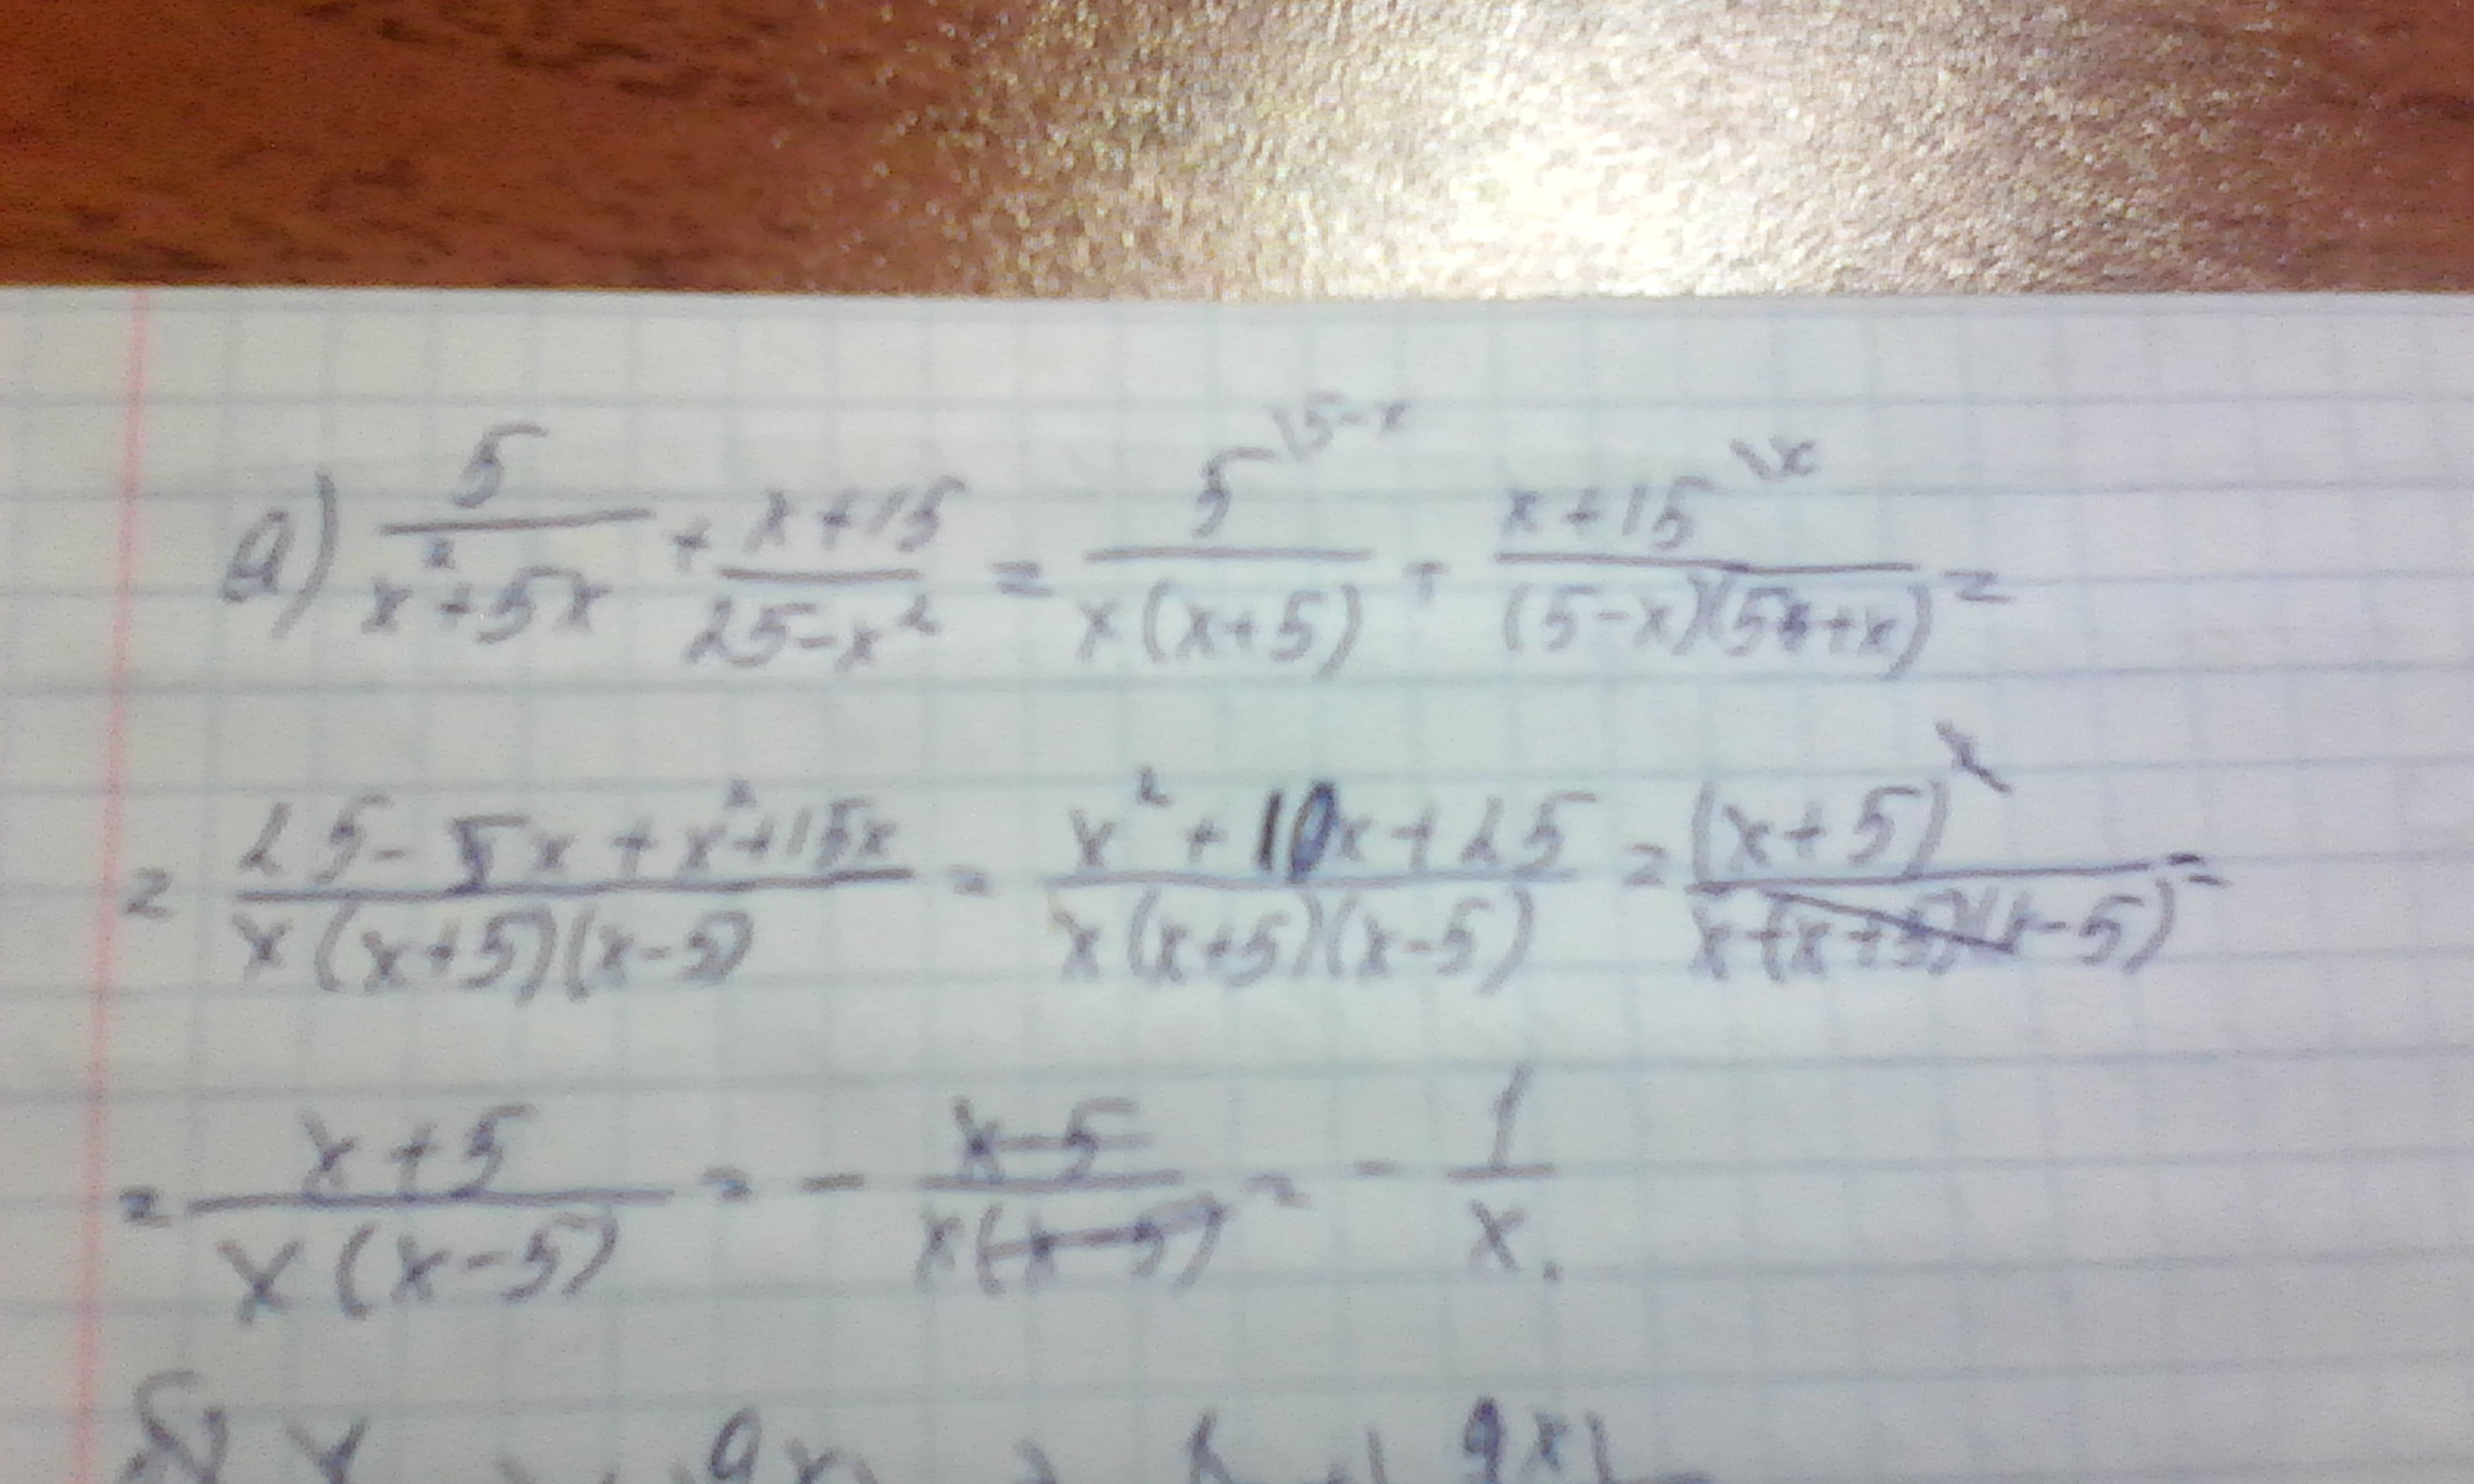 а) 5/(x²+5x) + (x+15)/(25-x²) = 5\5-x/(x(x+5)) + x+15\x/((5-x)(5+x)) =
= (25-5x+x²+15x)/(x(x+5)(x-5)) = (x²+10x+25)/(x(x+5)(x-5)) = (x+5)²/(x(x+5)(x-5)) =
= (x+5)/(x(x-5)) = - (x-5)/(x(x-5)) = - 1/x.